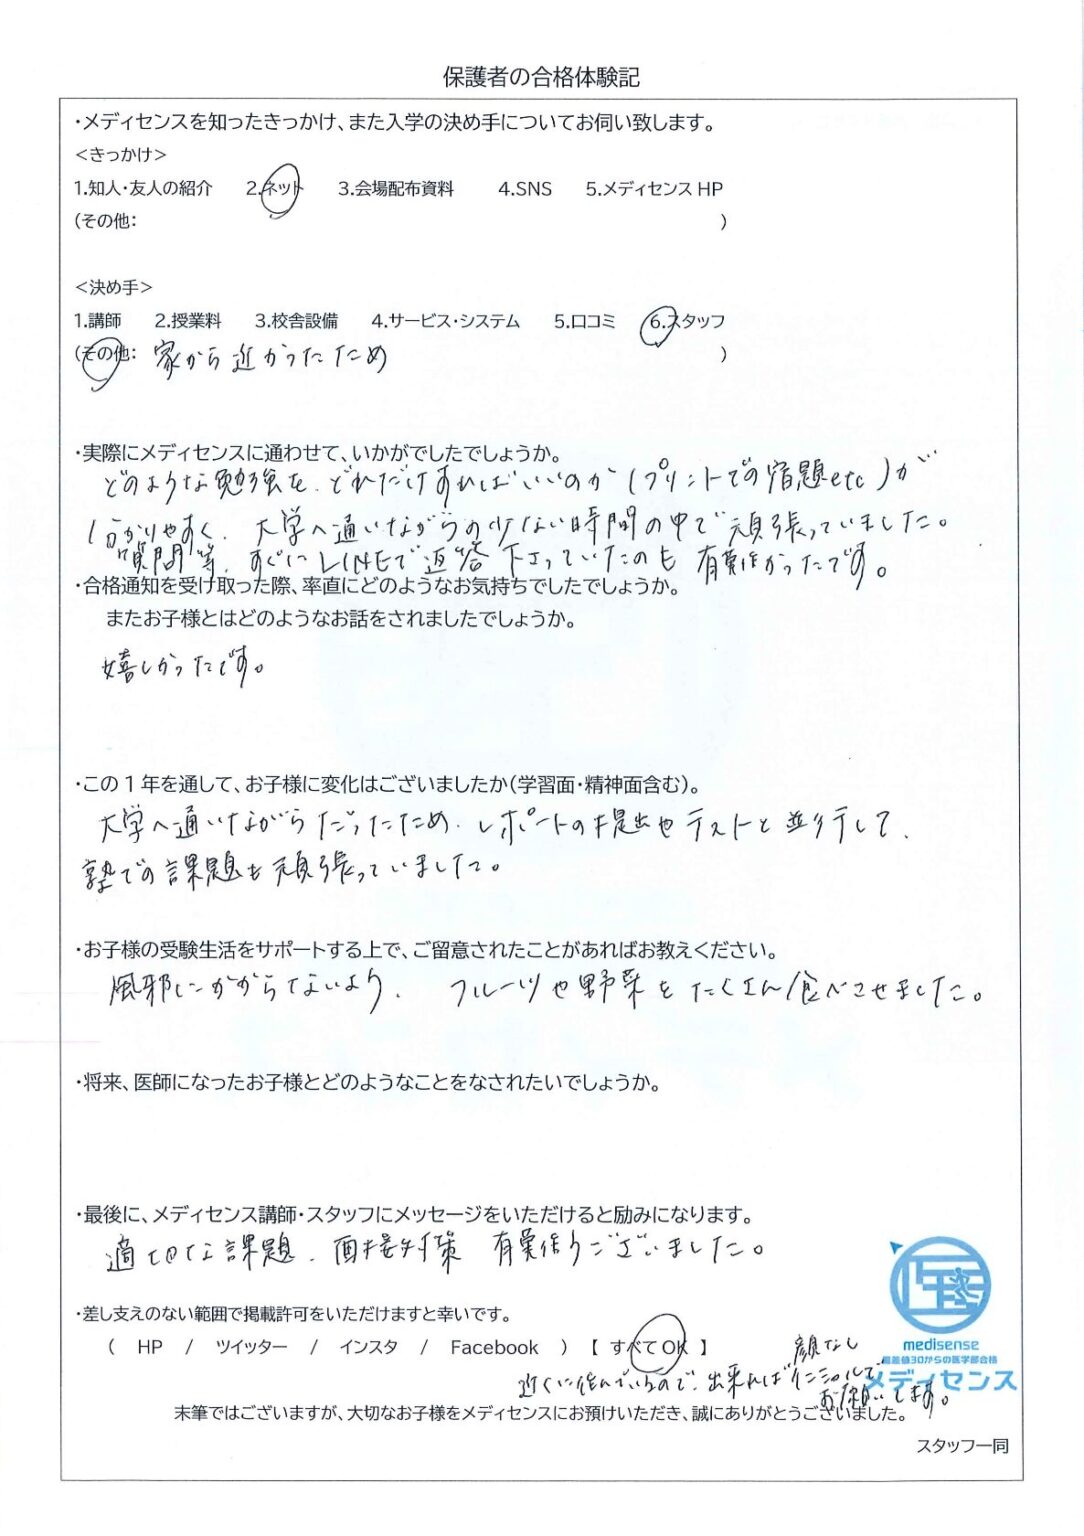 保護者の合格体験記
・メディセンスを知ったきっかけ、また入学の決め手についてお伺い致します。
<きっかけ>
1.知人・友人の紹介 2.ネット 3.会場配布資料 4.SNS 5.メディセンス HP
(その他: )
<決め手>
1.講師 2.授業料 3.校舎設備 4.サービス・システム 5.口コミ 6.スタッフ
(その他: 家から近かったため )
・実際にメディセンスに通わせて、いかがでしたでしょうか。
どのような勉強を、どれだけすればいいのか(プリントでの宿題etc)が
分かりやすく、大学へ通いながらの少ない時間の中で頑張っていました。
質問等、すぐにLINEで返答下さっていたのも有難かったです。
・合格通知を受け取った際、率直にどのようなお気持ちでしたでしょうか。
またお子様とはどのようなお話をされましたでしょうか。
嬉しかったです。
・この1年を通して、お子様に変化はございましたか(学習面・精神面含む)。
大学へ通いながらだったため、レポートの提出やテストと並行して、
塾での課題も頑張っていました。
・お子様の受験生活をサポートする上で、ご留意されたことがあればお教えください。
風邪にかからないよう、フルーツや野菜をたくさん食べさせました。
・将来、医師になったお子様とどのようなことをなされたいでしょうか。
・最後に、メディセンス講師・スタッフにメッセージをいただけると励みになります。
適切な課題、面接対策 有難うございました。
・差し支えのない範囲で掲載許可をいただけますと幸いです。
( HP / ツイッター / インスタ / Facebook ) 【 すべてOK 】
顔なし
近くに住んでいるので、出来ればイニシャルで
お願いします。
医
medisense
偏差値30からの医学部合格
メディセンス
末筆ではございますが、大切なお子様をメディセンスにお預けいただき、誠にありがとうございました。
スタッフ一同